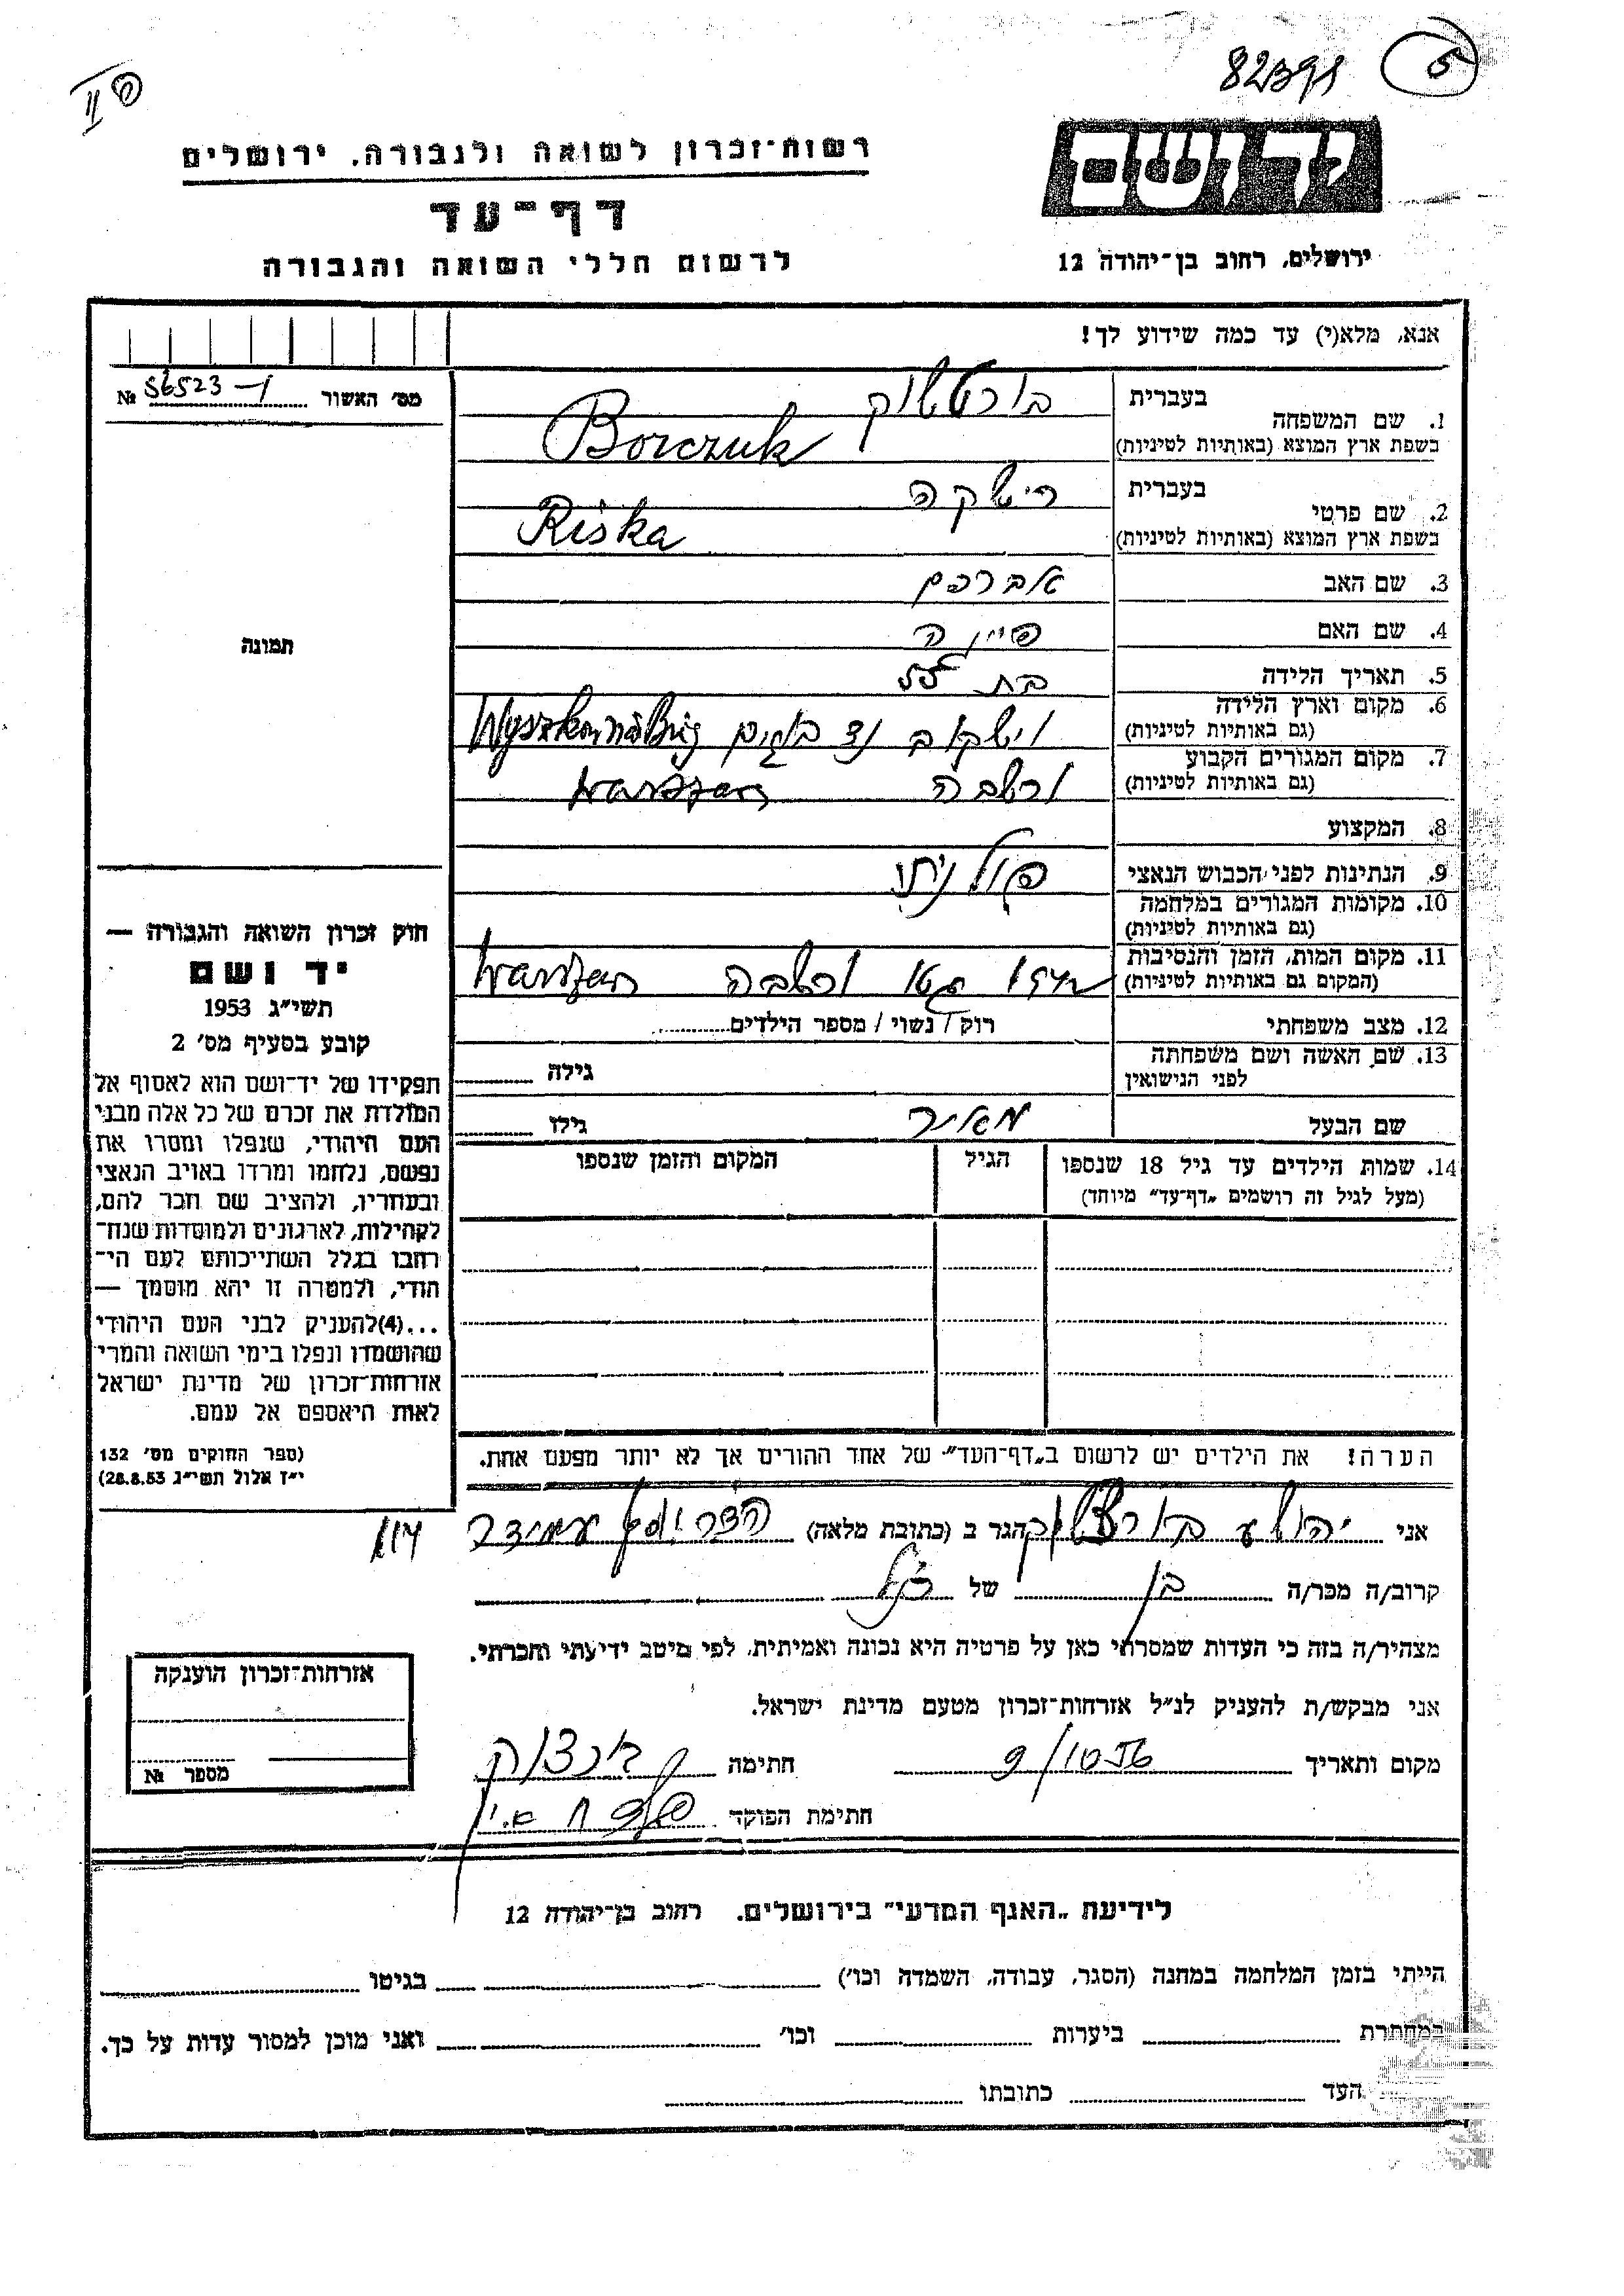 5
82398
רשות־זכרון לשואה ולגבורה, ירושלים
יד ושם
דף־עד
לרשום חללי השואה והגבורה
ירושלים, רחוב בן־יהודה 12
אנא, מלא(י) עד כמה שידוע לך!
מס׳ האשור № 56523-1
1. שם המשפחה בעברית בורטשוק
בשפת ארץ המוצא (באותיות לטיניות) Borczuk
2. שם פרטי בעברית רישקה
בשפת ארץ המוצא (באותיות לטיניות) Riśka
3. שם האב אברהם
4. שם האם
5. תאריך הלידה בת
6. מקום וארץ הלידה (גם באותיות לטיניות) וישקוב נד בוגים
7. מקום המגורים הקבוע (גם באותיות לטיניות) ורשבה Warszaw
8. המקצוע
9. הנתינות לפני הכבוש הנאצי פולנית
10. מקומות המגורים במלחמה
(גם באותיות לטיניות)
11. מקום המות, הזמן והנסיבות
(המקום גם באותיות לטיניות) גטו ורשבה Warszaw
12. מצב משפחתי רוק / נשוי / מספר הילדים
13. שם האשה ושם משפחתה לפני הנישואין גילה
שם הבעל מאיר גילו
14. שמות הילדים עד גיל 18 שנספו
(מעל לגיל זה רושמים „דף־עד״ מיוחד)
הגיל
המקום והזמן שנספו
הערה! את הילדים יש לרשום ב„דף־העד״ של אחד ההורים אך לא יותר מפעם אחת.
תמונה
חוק זכרון השואה והגבורה —
יד ושם
תשי״ג 1953
קובע בסעיף מס׳ 2
תפקידו של יד־ושם הוא לאסוף אל
המולדת את זכרם של כל אלה מבני
העם היהודי, שנפלו ומסרו את
נפשם, נלחמו ומרדו באויב הנאצי
ובעוזריו, ולהציב שם וזכר להם,
לקהילות, לארגונים ולמוסדות שנח־
רבו בגלל השתייכותם לעם הי־
הודי, ולמטרה זו יהא מוסמך —
...(4) להעניק לבני העם היהודי
שהושמדו ונפלו בימי השואה והמרי
אזרחות־זכרון של מדינת ישראל
לאות היאספם אל עמם.
(ספר החוקים מס׳ 132
י״ז אלול תשי״ג 28.8.53)
אני יהושע בורטשוק הגר ב (כתובת מלאה) עמידר
קרוב/ה מכר/ה בן של
מצהיר/ה בזה כי העדות שמסרתי כאן על פרטיה היא נכונה ואמיתית, לפי מיטב ידיעתי והכרתי.
אני מבקש/ת להעניק לנ״ל אזרחות־זכרון מטעם מדינת ישראל.
מקום ותאריך חתימה
חתימת הפוקד
אזרחות־זכרון הוענקה
מספר №
לידיעת „האגף המדעי״ בירושלים. רחוב בן־יהודה 12
הייתי בזמן המלחמה במחנה (הסגר, עבודה, השמדה וכו׳) בגיטו
במחתרת ביערות וכו׳ ואני מוכן למסור עדות על כך.
העד כתובתו